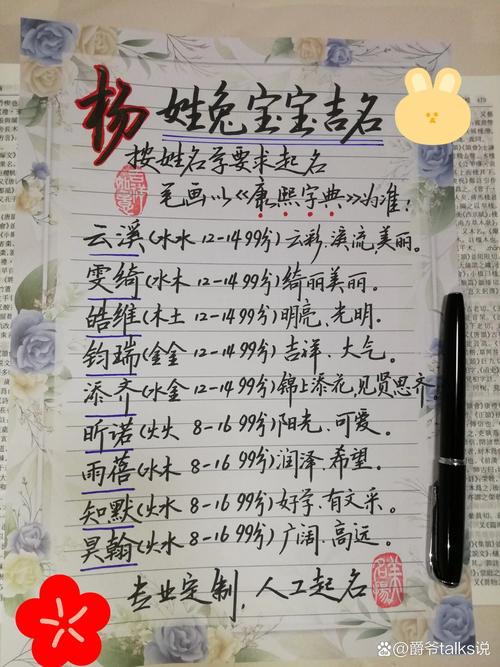 杨 姓兔宝宝吉名
按姓名学要求起名
笔画以《康熙字典》为准:
云溪(水水 12-14 99分)云彩、溪流,美丽。
雯绮(水木 12-14 99分)绮丽美丽。
皓维(木土 12-14 99分)明亮、光明。
钧瑞(金金 12-14 99分)吉祥、大气。
添齐(水金 12-14 99分)锦上添花,见贤思齐。
昕诺(火火 8-16 99分)阳光、可爱。
雨蓓(水木 8-16 99分)润泽、希望。
知默(火水 8-16 99分)好学、有文采。
昊翰(火水 8-16 99分)广阔、高远。
专业定制,人工起名
@爵爷talks说